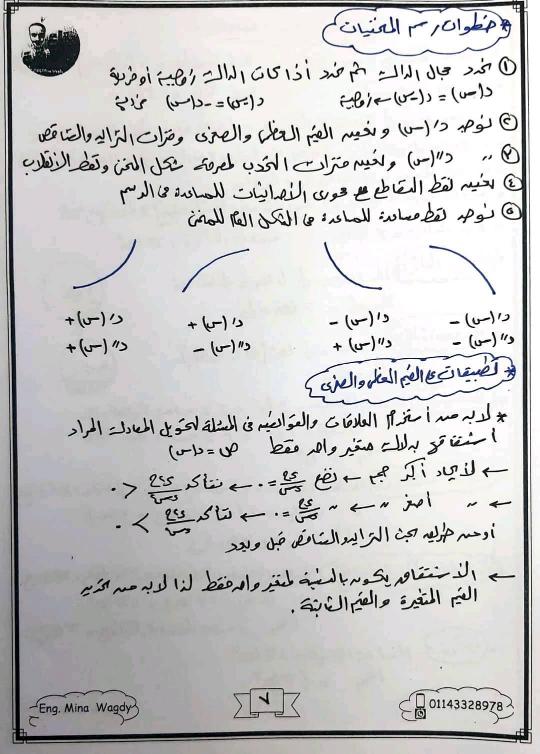 * خطوات رسم المنحنيات
① نحدد مجال الدالة ثم نحدد أذا كانت الدالة زوجية أو فردية
د(س) = د(-س) ← زوجية   د(-س) = -د(س) فردية
② نوجد د/(س) ونعين القيم العظمى والصغرى وفترات التزايد والتناقص
③ " د//(س) ونعين فترات التحدب لمعرفة شكل المنحنى ونقط الأنقلاب
④ نعين نقط التقاطع مع محورى الأحداثيات للمساعدة فى الرسم
⑤ نوجد نقط مساعدة للمساعدة فى الشكل العام للمنحنى
د/(س) -   د/(س) -   د/(س) +   د/(س) +
د//(س) -   د//(س) +   د//(س) -   د//(س) +
* تطبيقات على القيم العظمى والصغرى
* لابد من أستخدام العلاقات والقوانين فى المسئلة لتحويل المعادلة المراد
أشتقاقها بدلالة متغير واحد فقط ص = د(س)
← لأيجاد أكبر حجم ← نضع دح/دس = 0 ← نتأكد د²ح/دس² < 0
← " أصغر " ← " دح/دس = 0 ← نتأكد د²ح/دس² > 0
أو عن طريق بحث التزايد والتناقص قبل وبعد
← الأشتقاق يكون بالنسبة لمتغير واحد فقط لذا لابد من تحديد
القيم المتغيرة والقيم الثابتة.
Eng. Mina Wagdy
٧
01143328978